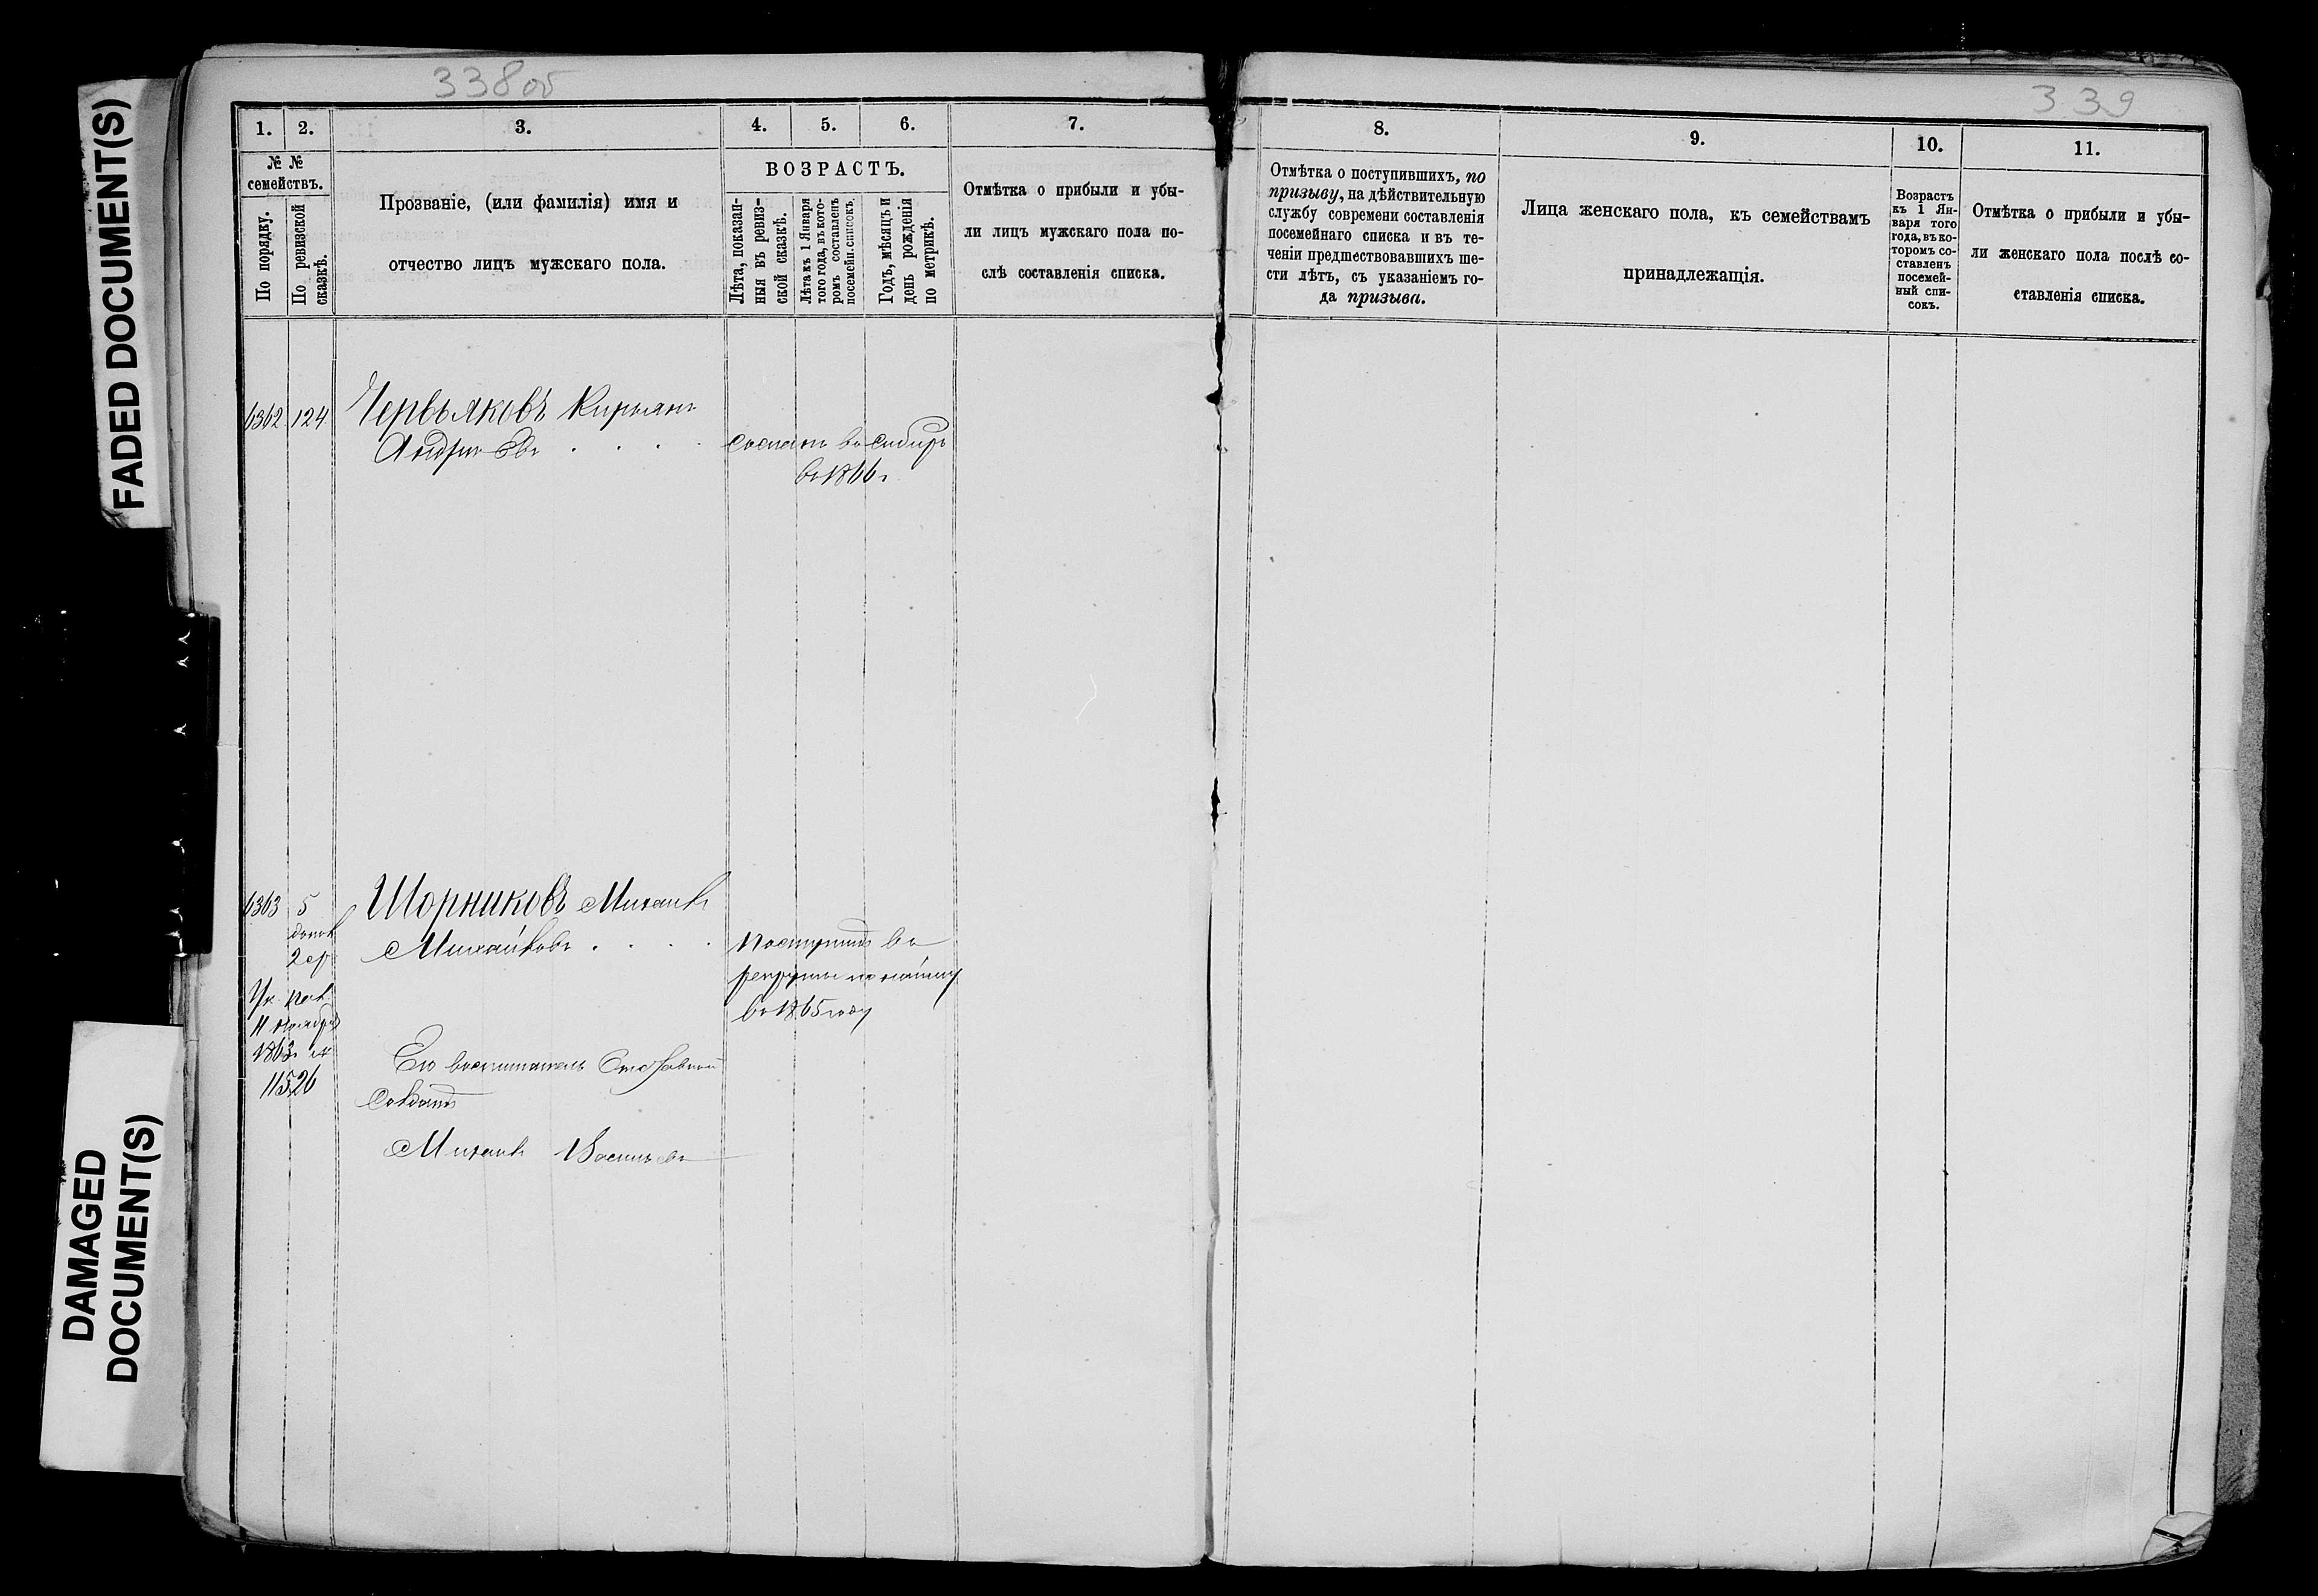 FADED DOCUMENT(S)
DAMAGED
DOCUMENT(S)
338об
339
1. 2. 3. 4. 5. 6. 7.
№ №
семействъ.
По порядку.
По ревизской
сказкѣ.
Прозваніе, (или фамилія) имя и
отчество лицъ мужскаго пола.
ВОЗРАСТЪ.
Лѣта, показан-
ныя въ ревиз-
ской сказкѣ.
Лѣта къ 1 Января
того года, въ кото-
ромъ составленъ
посемейн. списокъ.
Годъ, мѣсяцъ и
день рожденія
по метрикѣ.
Отмѣтка о прибыли и убы-
ли лицъ мужскаго пола по-
слѣ составленія списка.
8. 9. 10. 11.
Отмѣтка о поступившихъ, по
призыву, на дѣйствительную
службу современи составленія
посемейнаго списка и въ те-
ченіи предшествовавшихъ ше-
сти лѣтъ, съ указаніемъ го-
да призыва.
Лица женскаго пола, къ семействамъ
принадлежащія.
Возрастъ
къ 1 Ян-
варя того
года, въ ко-
торомъ со-
ставленъ
посемей-
ный спи-
сокъ.
Отмѣтка о прибыли и убы-
ли женскаго пола послѣ со-
ставленія списка.
6362 124 Червяковъ Кирьянъ
Андреевъ . . . . сосланъ въ Сибирь
въ 1866 г.
6363 5 Шорниковъ Михаилъ
допол
2 ср
Михайловъ . . . . поступилъ въ
рекруты по найму
въ 1865 году
Ук. пал.
11 ноября
1863 г. №
11526
Его воспитатель Отставной
Солдатъ
Михаилъ Васильевъ